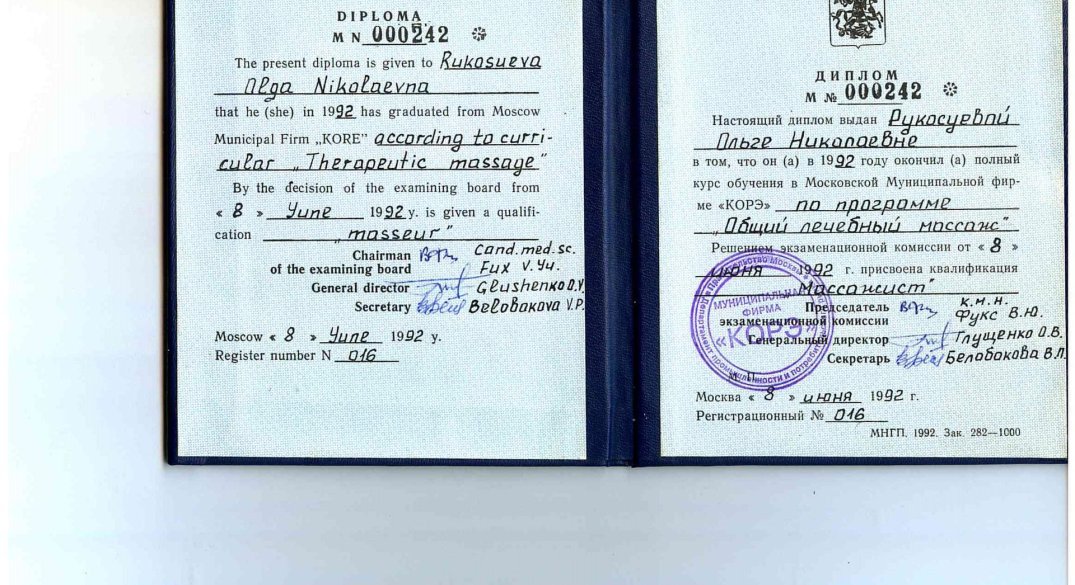 DIPLOMA
M N 000242
The present diploma is given to Rukosueva
Olga Nikolaevna
that he (she) in 1992 has graduated from Moscow
Municipal Firm „KORE" according to curri-
cular „Therapeutic massage"
By the decision of the examining board from
« 8 » Yune 1992 y. is given a qualifi-
cation „masseur"
Chairman Cand.med.sc.
of the examining board Fux V.Yu.
General director Glushenko O.V.
Secretary Belobakova V.P.
Moscow « 8 » Yune 1992 y.
Register number N 016
ДИПЛОМ
М № 000242
Настоящий диплом выдан Рукосуевой
Ольге Николаевне
в том, что он (а) в 1992 году окончил (а) полный
курс обучения в Московской Муниципальной фир-
ме «КОРЭ» по программе
„Общий лечебный массаж"
Решением экзаменационной комиссии от « 8 »
июня 1992 г. присвоена квалификация
Массажист"
Председатель К.м.н.
экзаменационной комиссии Фукс В.Ю.
Генеральный директор Глущенко О.В.
Секретарь Белобокова В.П.
МУНИЦИПАЛЬНАЯ
ФИРМА
«КОРЭ»
М. П.
Москва « 8 » июня 1992 г.
Регистрационный № 016
МНГП. 1992. Зак. 282—1000